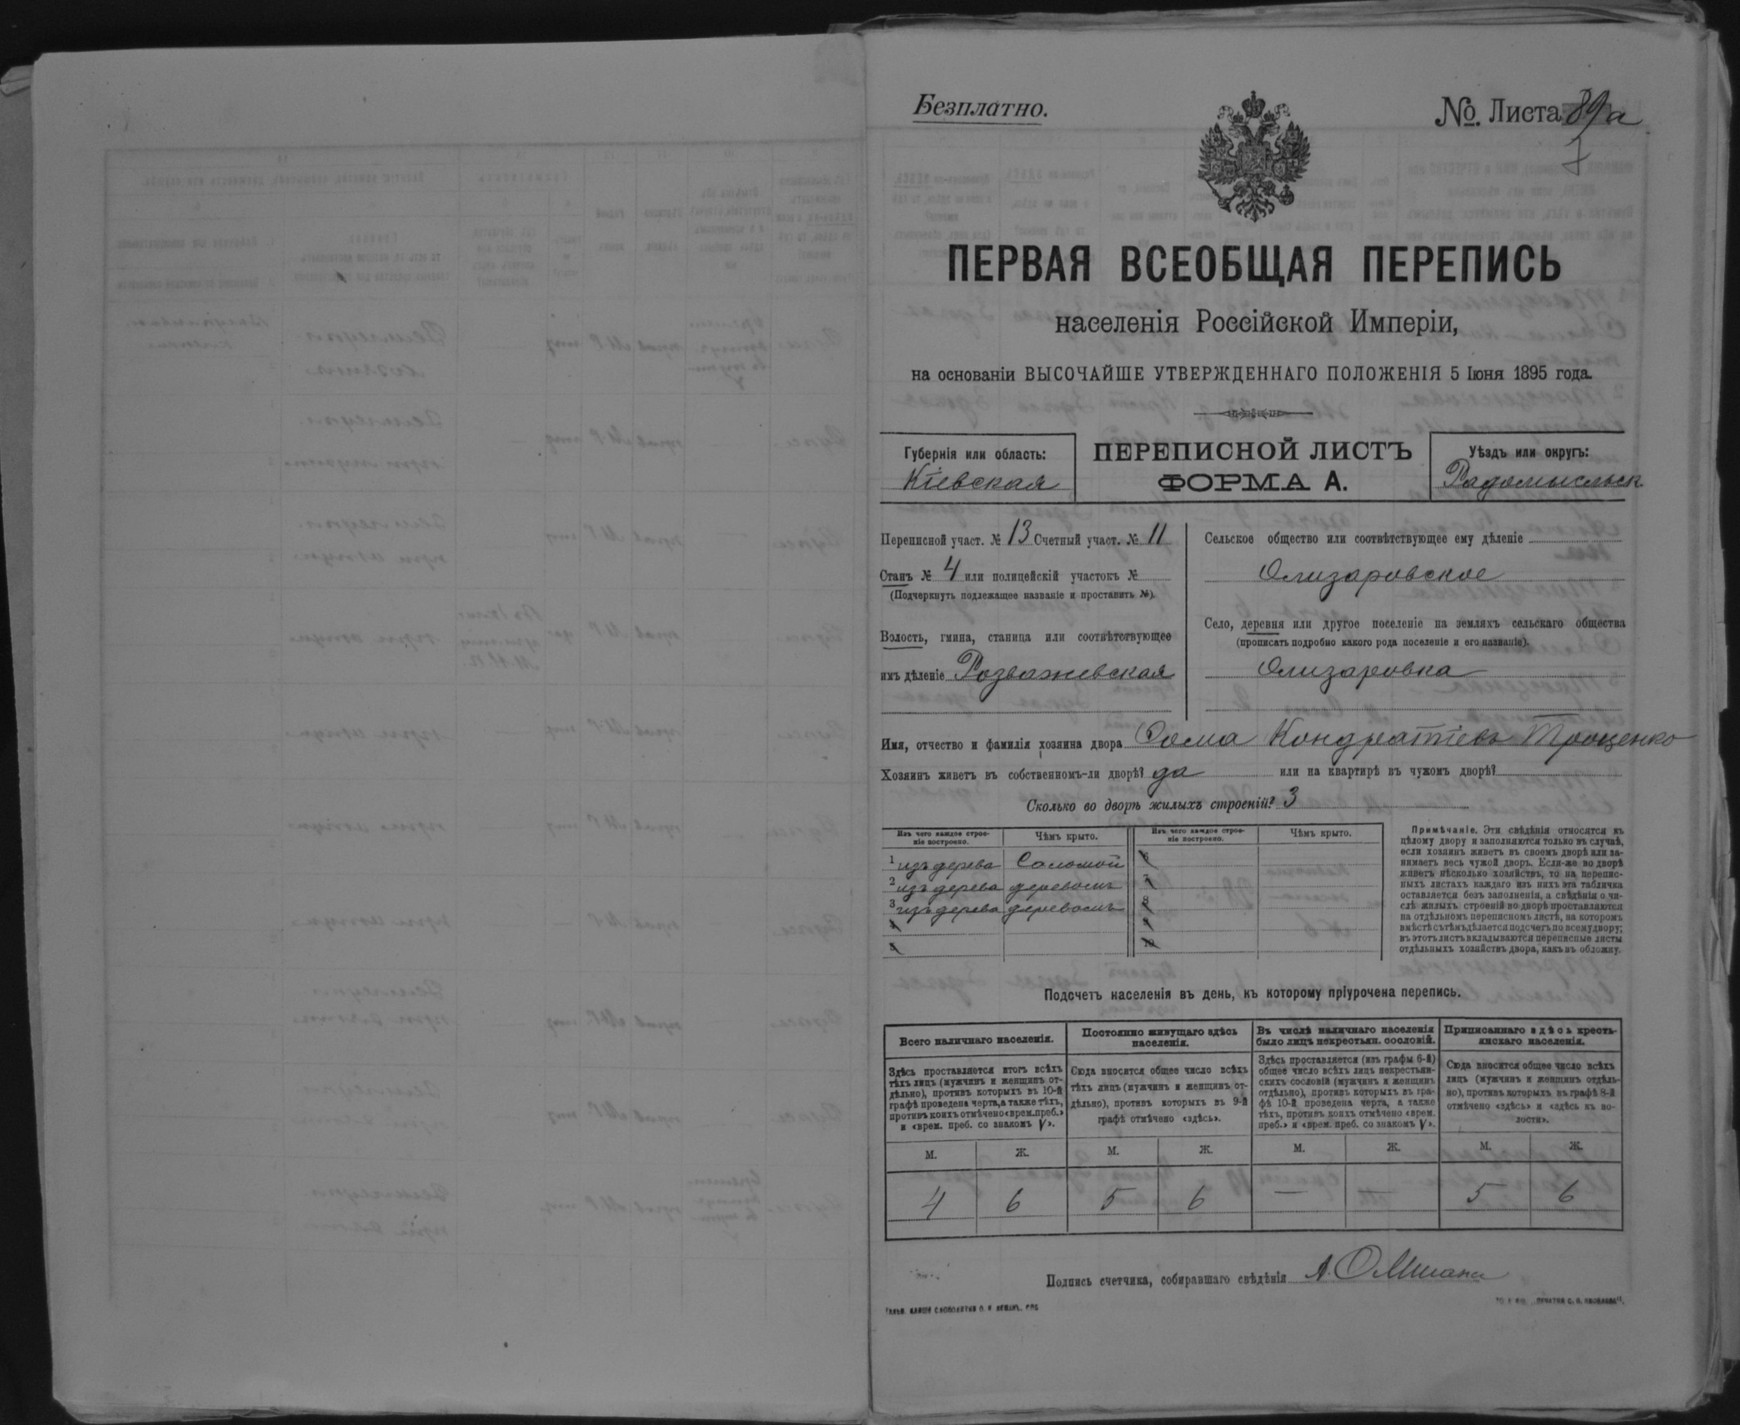 Безплатно.
№. Листа 89а
ПЕРВАЯ ВСЕОБЩАЯ ПЕРЕПИСЬ
населенія Россійской Имперіи,
на основаніи ВЫСОЧАЙШЕ УТВЕРЖДЕННАГО ПОЛОЖЕНІЯ 5 Іюня 1895 года.
Губернія или область:
Кіевская
ПЕРЕПИСНОЙ ЛИСТЪ
ФОРМА А.
Уѣздъ или округъ:
Радомысльск.
Переписной участ. № 13 Счетный участ. № 11
Станъ № 4 или полицейскій участокъ №
(Подчеркнуть подлежащее названіе и проставить №).
Волость, гмина, станица или соотвѣтствующее
имъ дѣленіе Розважевская
Сельское общество или соотвѣтствующее ему дѣленіе
Олизаровское
Село, деревня или другое поселеніе на земляхъ сельскаго общества
(прописать подробно какого рода поселеніе и его названіе).
Олизаровка
Имя, отчество и фамилія хозяина двора Сома Кондратіевъ Троценко
Хозяинъ живетъ въ собственномъ-ли дворѣ? да или на квартирѣ въ чужомъ дворѣ?
Сколько во дворѣ жилыхъ строеній? 3
Изъ чего каждое строе-
ніе построено.
Чѣмъ крыто.
Изъ чего каждое строе-
ніе построено.
Чѣмъ крыто.
1 изъ дерева Соломой 6
2 изъ дерева деревомъ 7
3 изъ дерева деревомъ 8
4 9
5 10
Примѣчаніе. Эти свѣдѣнія относятся къ
цѣлому двору и заполняются только въ случаѣ,
если хозяинъ живетъ въ своемъ дворѣ или за-
нимаетъ весь чужой дворъ. Если-же во дворѣ
живетъ нѣсколько хозяйствъ, то на перепис-
ныхъ листахъ каждаго изъ нихъ эта табличка
оставляется безъ заполненія, а свѣдѣнія о чи-
слѣ жилыхъ строеній во дворѣ проставляются
на отдѣльномъ переписномъ листѣ, на которомъ
вмѣстѣ съ тѣмъ дѣлается подсчетъ по всему двору;
въ этотъ листъ вкладываются переписные листы
отдѣльныхъ хозяйствъ двора, какъ въ обложку.
Подсчетъ населенія въ день, къ которому пріурочена перепись.
Всего наличнаго населенія.
Постоянно живущаго здѣсь
населенія.
Въ числѣ наличнаго населенія
было лицъ некрестьян. сословій.
Приписаннаго здѣсь кресть-
янскаго населенія.
Здѣсь проставляется итогъ всѣхъ
тѣхъ лицъ (мужчинъ и женщинъ от-
дѣльно), противъ которыхъ въ 10-й
графѣ проведена черта, а также тѣхъ,
противъ коихъ отмѣчено «врем. преб.»
и «врем. преб. со знакомъ V».
Сюда вносится общее число всѣхъ
тѣхъ лицъ (мужчинъ и женщинъ от-
дѣльно), противъ которыхъ въ 9-й
графѣ отмѣчено «здѣсь».
Здѣсь проставляется (изъ графы 6-й)
общее число всѣхъ лицъ некрестьян-
скихъ сословій (мужчинъ и женщинъ
отдѣльно), противъ которыхъ въ гра-
фѣ 10-й проведена черта, а также
тѣхъ, противъ коихъ отмѣчено «врем.
преб.» и «врем. преб. со знакомъ V».
Сюда вносится общее число всѣхъ
лицъ (мужчинъ и женщинъ отдѣль-
но), противъ которыхъ въ графѣ 8-й
отмѣчено «здѣсь» и «здѣсь въ во-
лости».
М. Ж. М. Ж. М. Ж. М. Ж.
4 6 5 6 — — 5 6
Подпись счетчика, собиравшаго свѣдѣнія